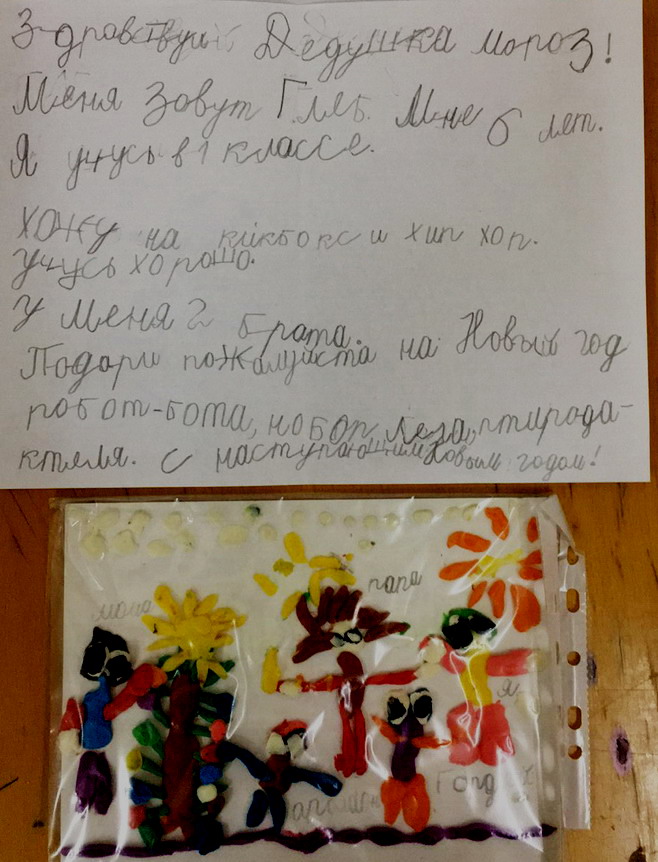 Здравствуй Дедушка мороз!
Меня зовут Глеб. Мне 6 лет.
Я учусь в 1 классе.
Хожу на кикбокс и хип хоп.
Учусь хорошо.
У меня 2 брата.
Подари пожалуйста на Новый год
робот-бота, нобор Лега, птирода-
ктеля. С наступающим Новым годом!
папа
мама
я